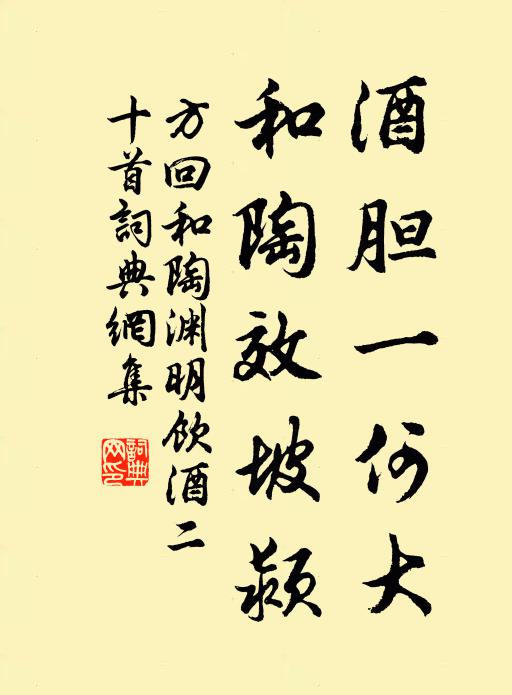 酒胆一何大
和陶效坡颍
方回和陶渊明饮酒二
十首詞典網集
詞典
网印